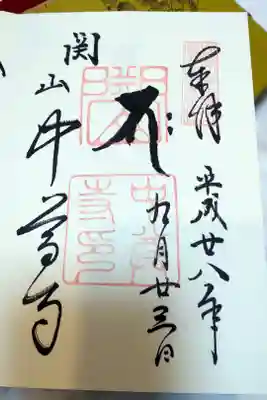 奉拝
平成廿八年
九月廿三日
関山
中尊寺